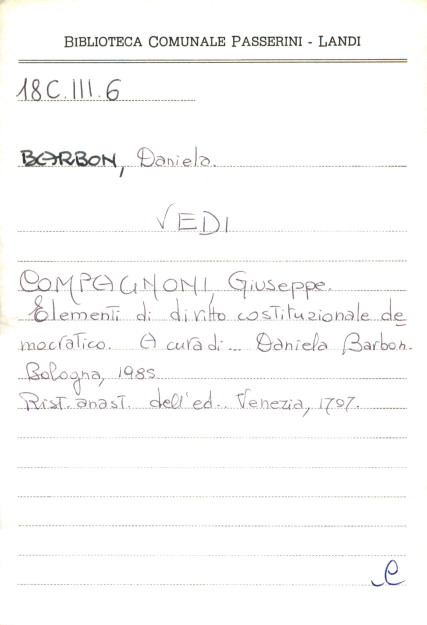 BIBLIOTECA COMUNALE PASSERINI - LANDI
18C.III.6
BARBON, Daniela.
VEDI
COMPAGNONI, Giuseppe.
Elementi di diritto costituzionale de
mocratico. A cura di... Daniela Barbon.
Bologna, 1985
Rist. anast. dell'ed.. Venezia, 1797.